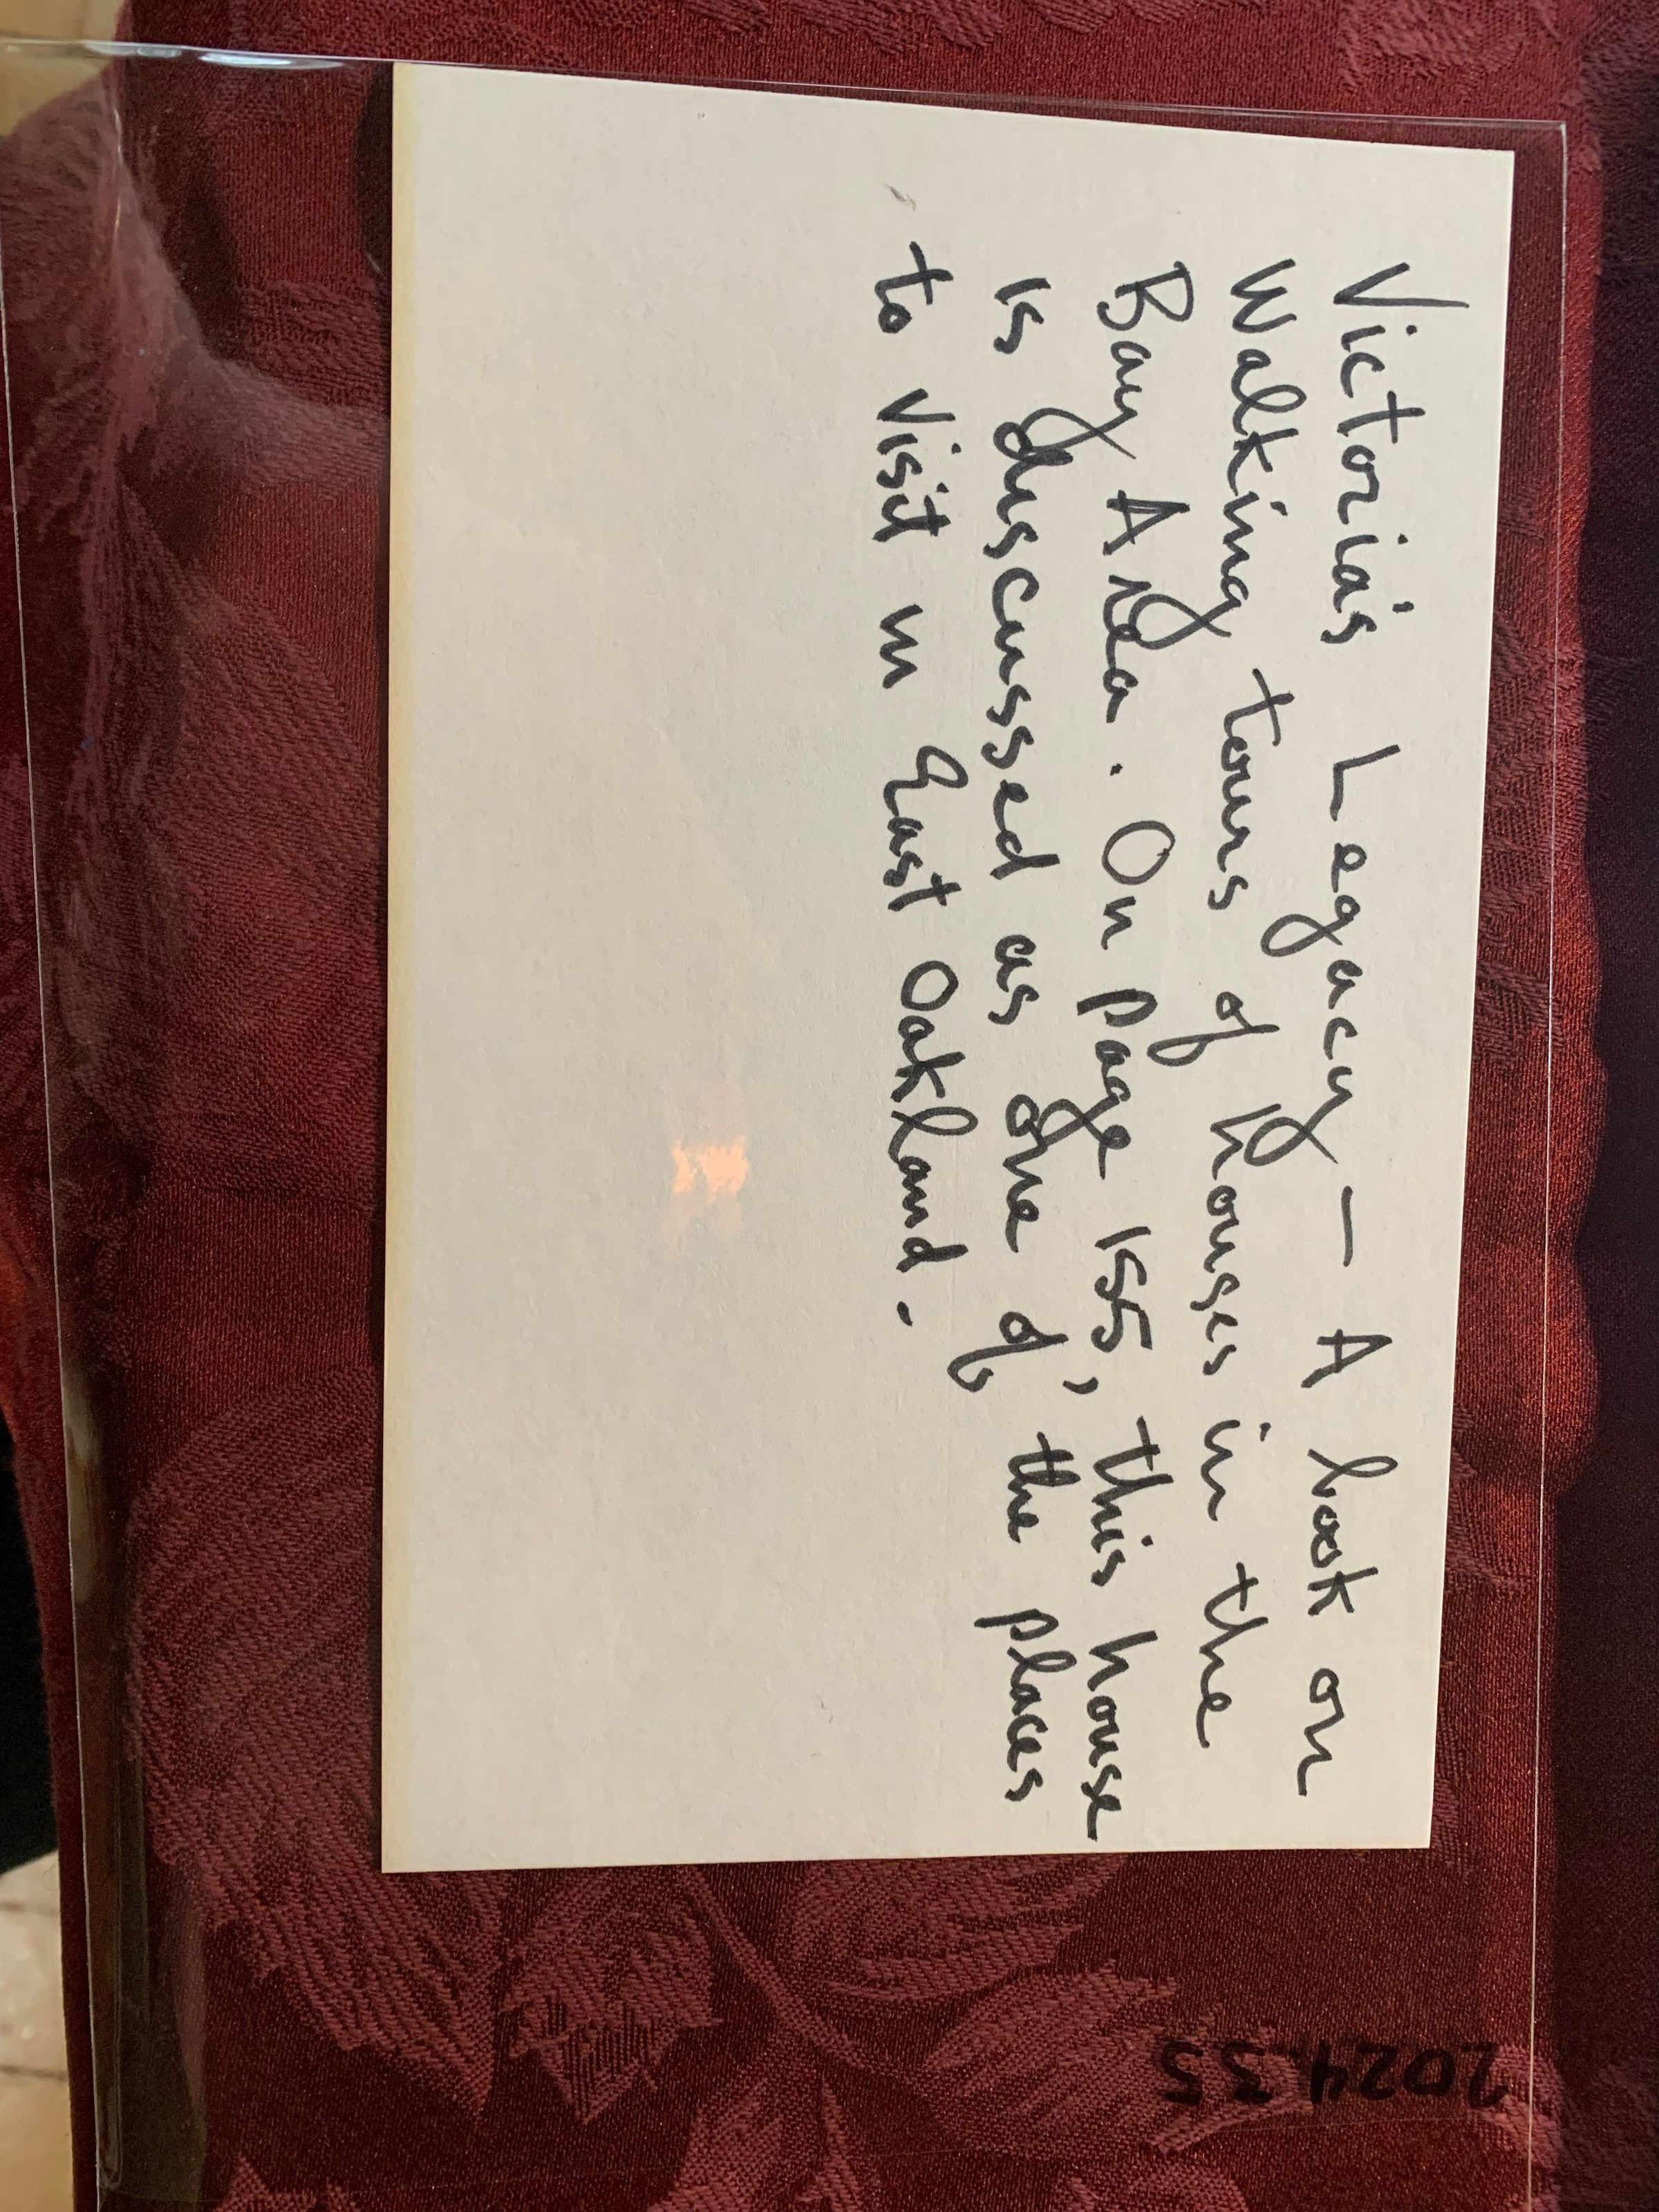 Victoria's Legacy — A book on
Walking tours of houses in the
Bay Area. On page 155, this house
is discussed as one of the places
to visit in East Oakland.
2024.35